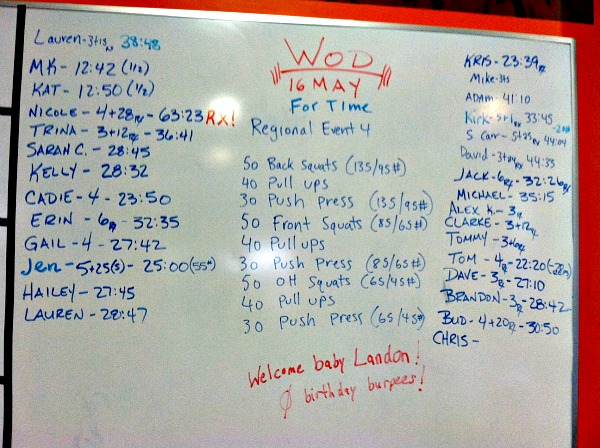 Lauren - 3+15 38:48
MK - 12:42 (1/2)
KAT - 12:50 (1/2)
NICOLE - 4+28 RX - 63:23 RX!
TRINA - 3+12 RX - 36:41
SARAH C. - 28:45
KELLY - 28:32
CADIE - 4 - 23:50
ERIN - 6 RX - 32:35
GAIL - 4 - 27:42
Jen - 5+25(s) - 25:00 (55#)
HAILEY - 27:45
LAUREN - 28:47
WOD
16 MAY
For Time
Regional Event 4
50 Back Squats (135/95#)
40 Pull ups
30 Push Press (135/95#)
50 Front Squats (85/65#)
40 Pull ups
30 Push Press (85/65#)
50 OH Squats (65/45#)
40 Pull ups
30 Push Press (65/45#)
Welcome baby Landon!
Ø birthday burpees!
KRIS - 23:39 RX
Mike - 3+5
ADAM - 41:10
Kirk - 5+1 RX 33:45
S Carr - 5+25 RX 44:04
David - 3+24 RX 44:35
JACK - 6 RX - 32:26 RX
MICHAEL - 35:15
ALEX K. - 3 RX
CLARKE - 3+12 RX
TOMMY - 3+6 RX
TOM - 4 RX - 22:20
DAVE - 3 RX - 27:10
BRANDON - 3 RX - 28:42
BUD - 4+20 RX - 30:50
CHRIS -